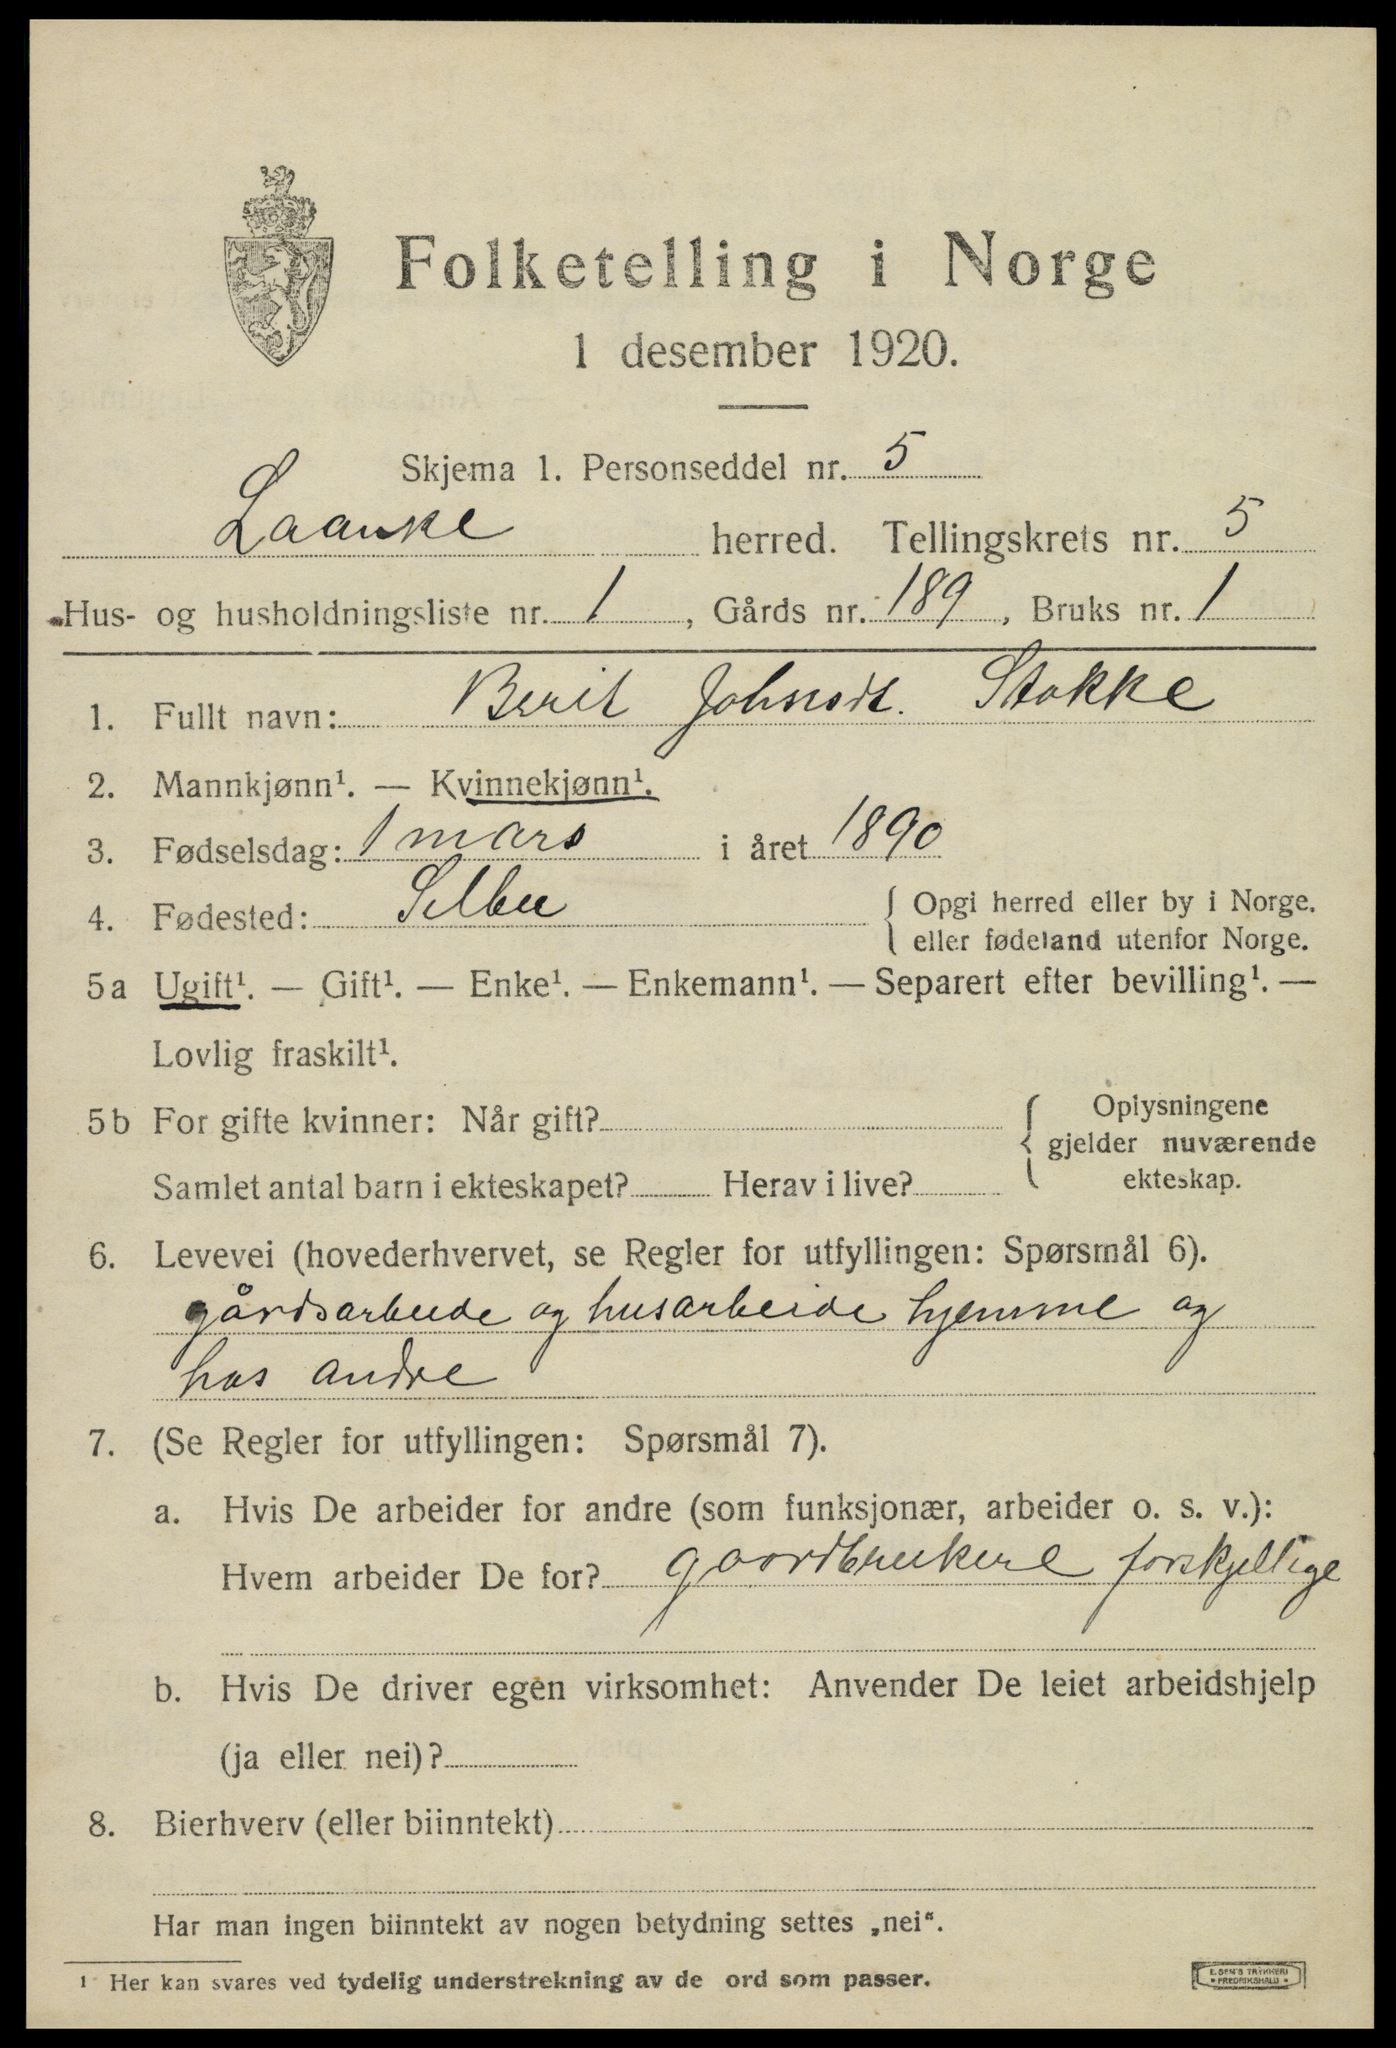 Folketelling i Norge
1 desember 1920.
Skjema 1. Personseddel nr. 5
Laanke herred. Tellingskrets nr. 5
Hus- og husholdningsliste nr. 1, Gårds nr. 189, Bruks nr. 1
1. Fullt navn: Berit Johnsdt. Stokke
2. Mannkjønn¹. — Kvinnekjønn¹.
3. Fødselsdag: 1 mars i året 1890
4. Fødested: Selbu { Opgi herred eller by i Norge,
eller fødeland utenfor Norge.
5a Ugift¹. — Gift¹. — Enke¹. — Enkemann¹. — Separert efter bevilling¹. —
Lovlig fraskilt¹.
5b For gifte kvinner: Når gift? { Oplysningene
gjelder nuværende
Samlet antal barn i ekteskapet? Herav i live? ekteskap.
6. Levevei (hovederhvervet, se Regler for utfyllingen: Spørsmål 6).
gårdsarbeide og husarbeide hjemme og
hos andre
7. (Se Regler for utfyllingen: Spørsmål 7).
a. Hvis De arbeider for andre (som funksjonær, arbeider o. s. v.):
Hvem arbeider De for? gaardbrukere forskjellige
b. Hvis De driver egen virksomhet: Anvender De leiet arbeidshjelp
(ja eller nei)?
8. Bierhverv (eller biinntekt)
Har man ingen biinntekt av nogen betydning settes „nei“.
¹ Her kan svares ved tydelig understrekning av de ord som passer.
E. SEM'S TRYKKERI
FREDRIKSHALD